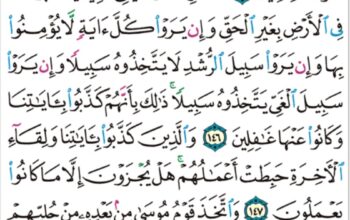 فِى ٱلْأَرْضِ بِغَيْرِ ٱلْحَقِّ وَإِن يَرَوْا۟ كُلَّ ءَايَةٍ لَّا يُؤْمِنُوا۟
بِهَا وَإِن يَرَوْا۟ سَبِيلَ ٱلرُّشْدِ لَا يَتَّخِذُوهُ سَبِيلًا وَإِن يَرَوْا۟
سَبِيلَ ٱلْغَىِّ يَتَّخِذُوهُ سَبِيلًا ۚ ذَٰلِكَ بِأَنَّهُمْ كَذَّبُوا۟ بِـَٔايَٰتِنَا
وَكَانُوا۟ عَنْهَا غَٰفِلِينَ ١٤٦ وَٱلَّذِينَ كَذَّبُوا۟ بِـَٔايَٰتِنَا وَلِقَآءِ
ٱلْأَخِرَةِ حَبِطَتْ أَعْمَٰلُهُمْ ۚ هَلْ يُجْزَوْنَ إِلَّا مَا كَانُوا۟
يَعْمَلُونَ ١٤٧ وَٱتَّخَذَ قَوْمُ مُوسَىٰ مِنۢ بَعْدِهِۦ مِنْ حُلِيِّهِمْ